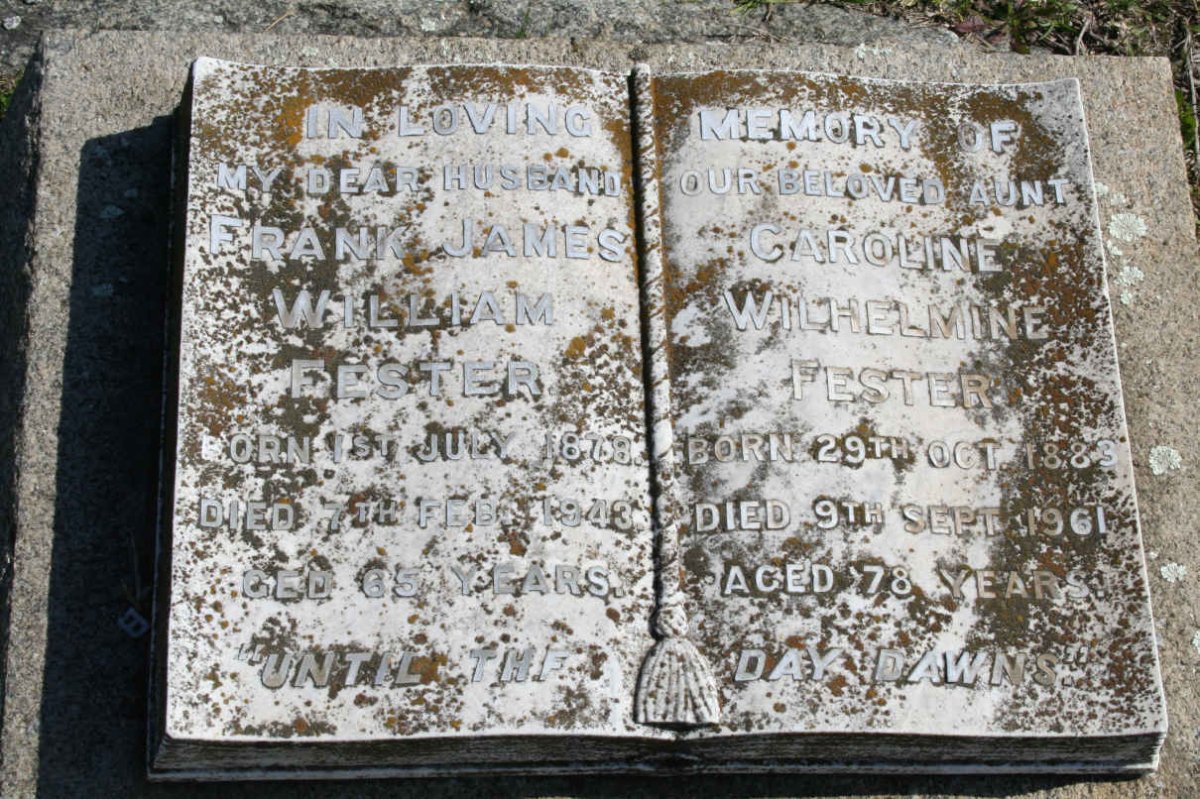 IN LOVING MEMORY OF
MY DEAR HUSBAND
FRANK JAMES
WILLIAM
FESTER
ORN 1ST JULY 1878.
DIED 7TH FEB. 1943
GED 65 YEARS.
OUR BELOVED AUNT
CAROLINE
WILHELMINE
FESTER
BORN 29TH OCT. 1883
DIED 9TH SEPT. 1961
AGED 78 YEARS.
"UNTIL THE DAY DAWNS"
B